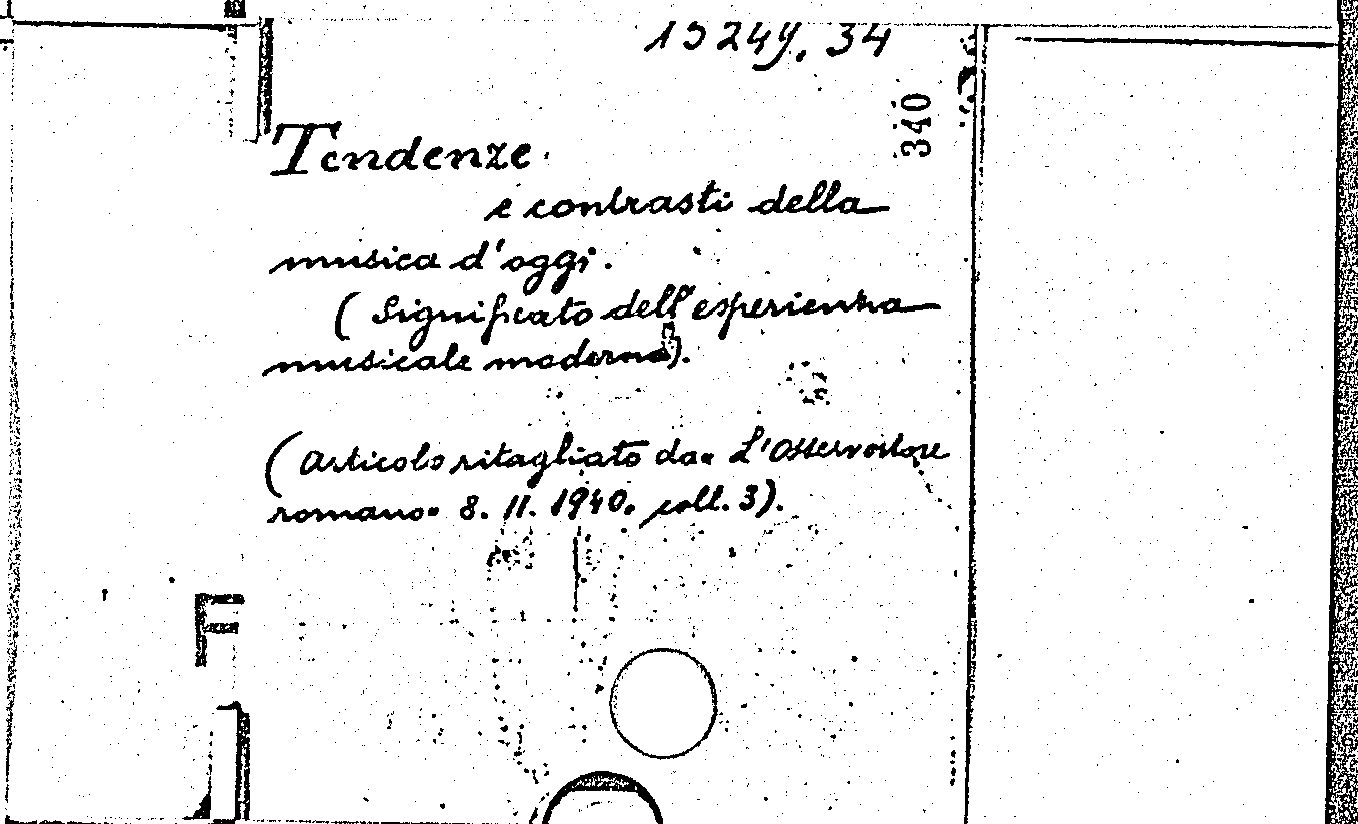 15249.34
340
Tendenze
e contrasti della
musica d'oggi.
(Significato dell'esperienza
musicale moderna).
(Articolo ritagliato da "L'Osservatore
romano" 8. 11. 1940. coll. 3).
F